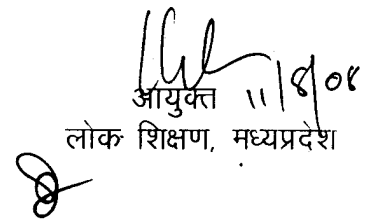 आयुक्त 11/8/08
लोक शिक्षण, मध्यप्रदेश